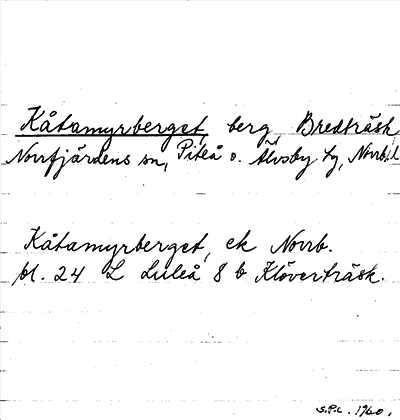 Kåtamyrberget, berg, Bredträsk
Norrfjärdens sn, Piteå o. Älvsby tg, Norrb. l
Kåtamyrberget, ek Norrb.
bl. 24 L Luleå 8 b Klöverträsk.
S.P.L. 1960.